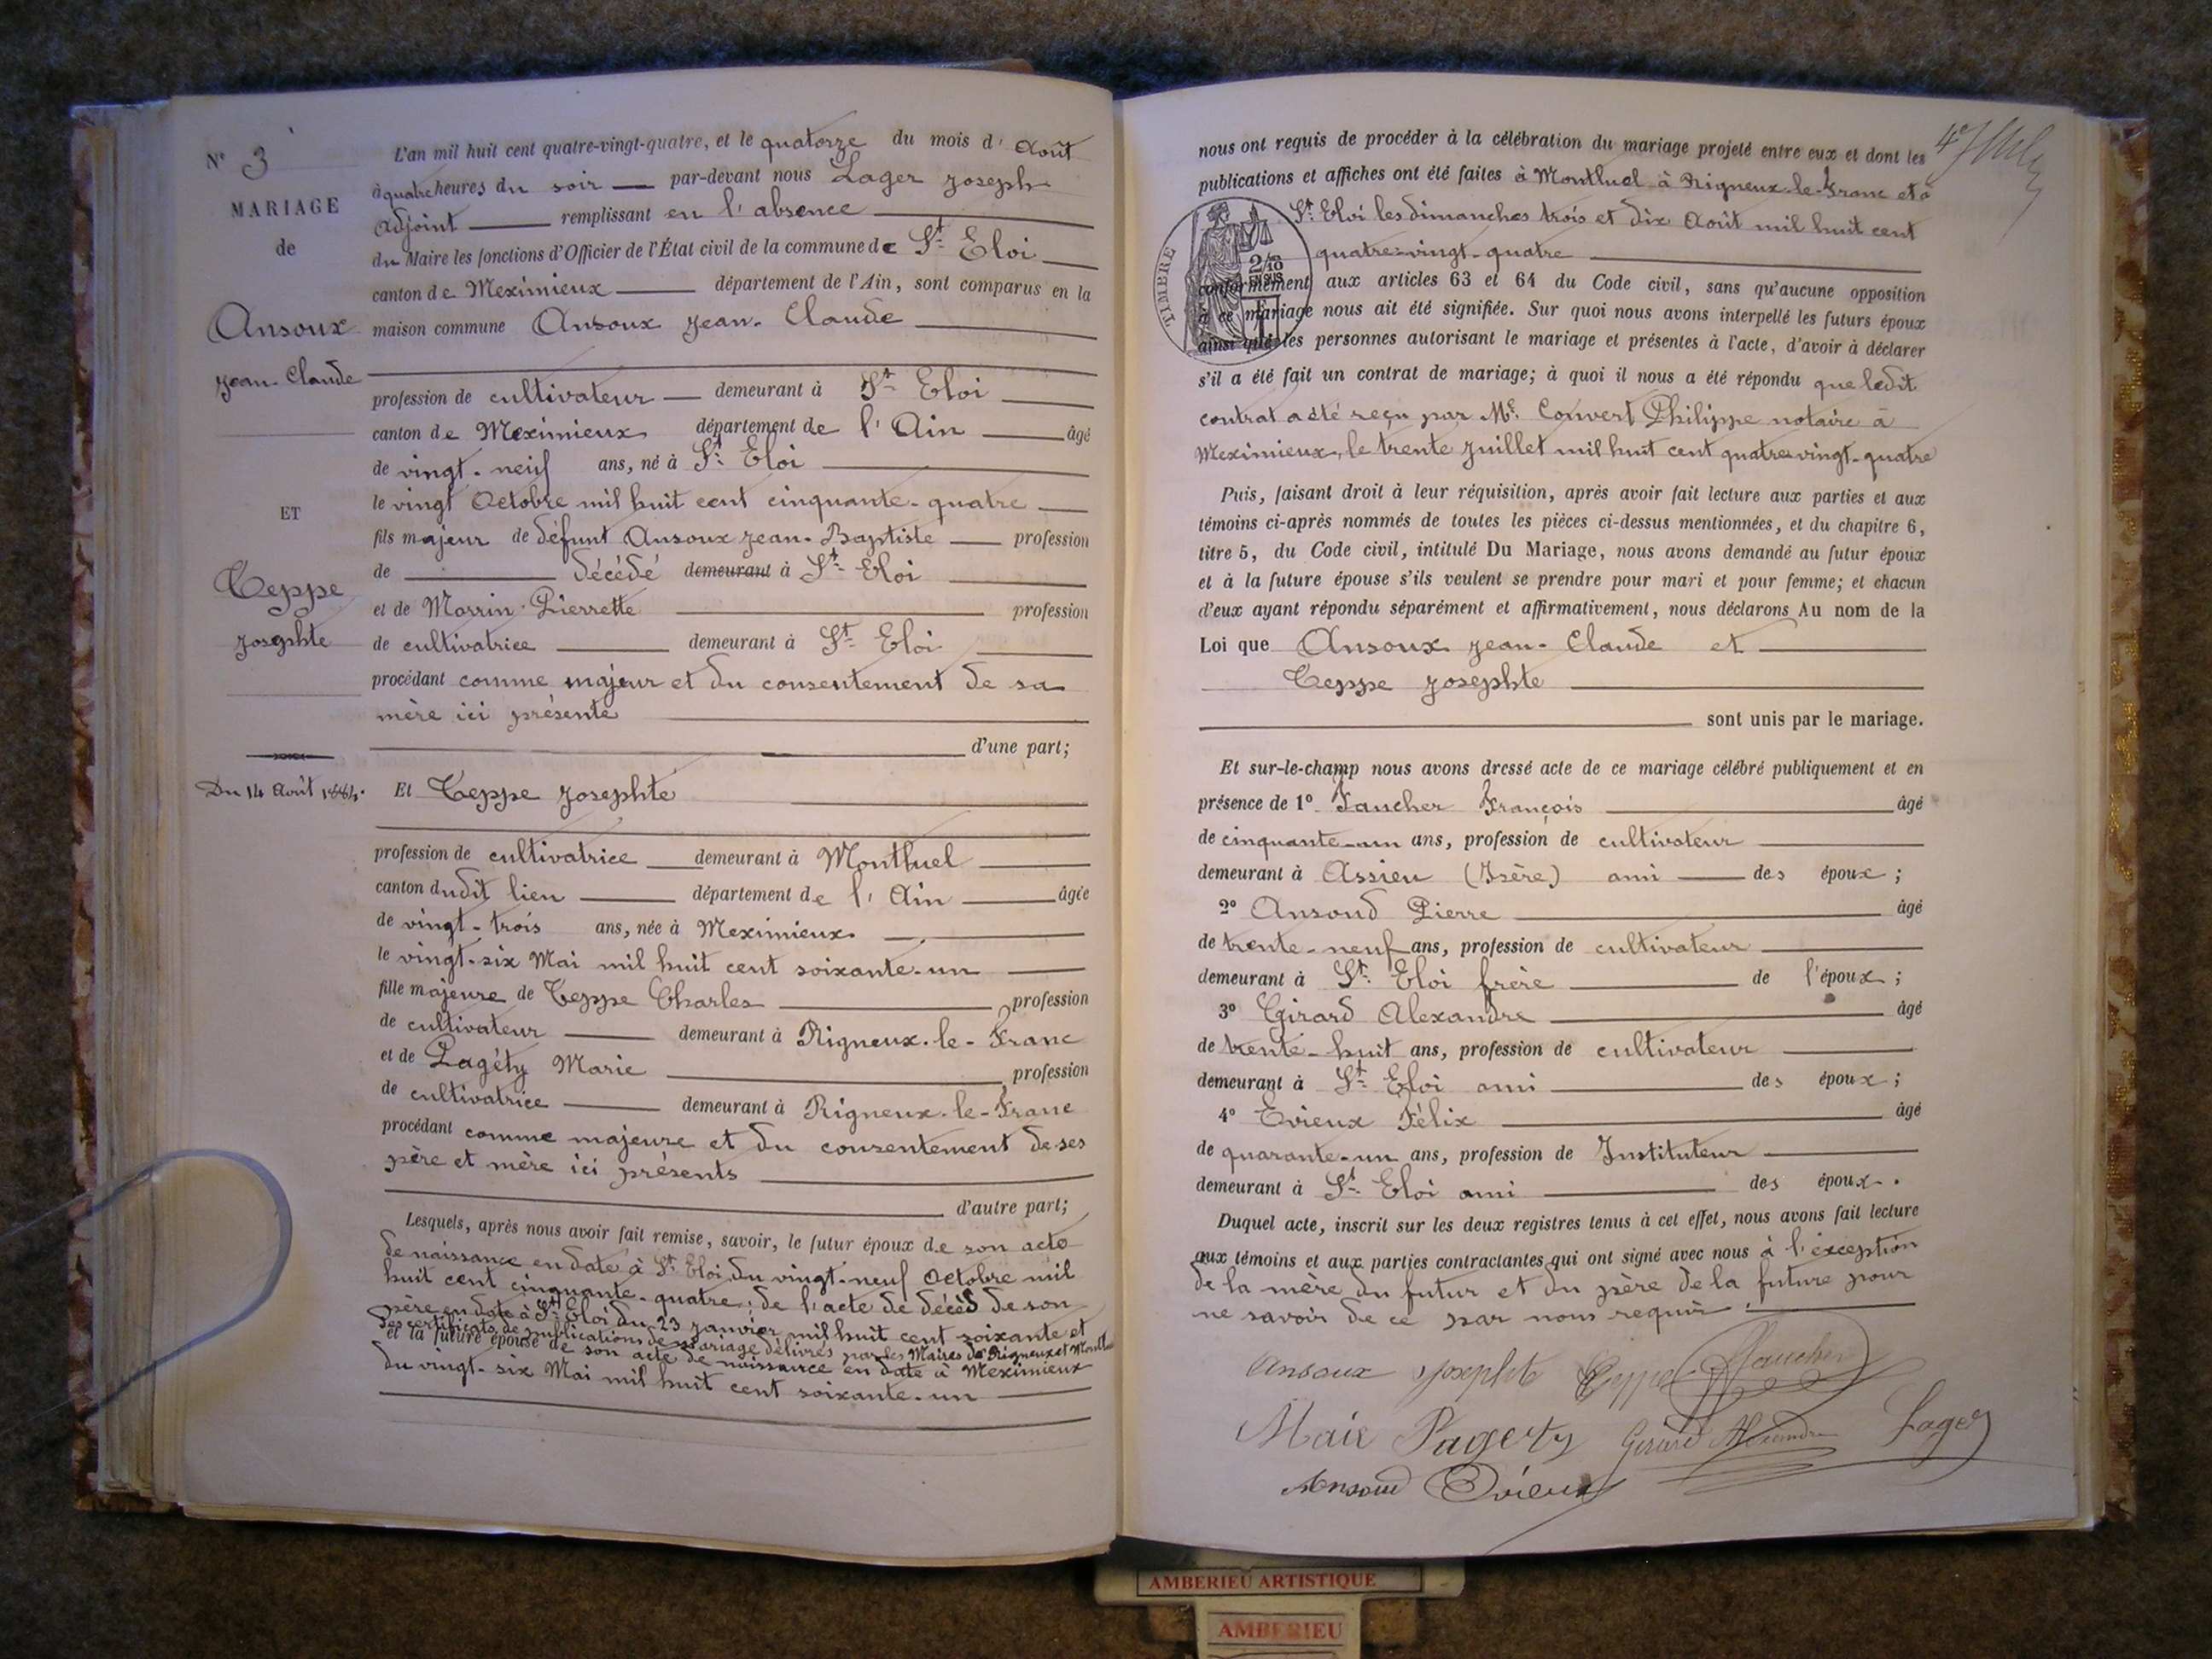 N° 3
MARIAGE
de
Ansoux
Jean-Claude
ET
Teppe
Josephte
Du 14 Août 1884.
L'an mil huit cent quatre-vingt-quatre, et le quatorze du mois d' Août
à quatre heures du soir par-devant nous Lager Joseph
Adjoint remplissant en l'absence
du Maire les fonctions d'Officier de l'État civil de la commune de St Eloi
canton de Meximieux département de l'Ain, sont comparus en la
maison commune Ansoux Jean-Claude
profession de cultivateur demeurant à St Eloi
canton de Meximieux département de l'Ain âgé
de vingt-neuf ans, né à St Eloi
le vingt Octobre mil huit cent cinquante-quatre
fils majeur de défunt Ansoux Jean-Baptiste profession
de décédé demeurant à St Eloi
et de Morrin Pierrette profession
de cultivatrice demeurant à St Eloi
procédant comme majeur et du consentement de sa
mère ici présente
d'une part;
Et Teppe Josephte
profession de cultivatrice demeurant à Montluel
canton dudit lieu département de l'Ain âgée
de vingt-trois ans, née à Meximieux
le vingt-six Mai mil huit cent soixante-un
fille majeure de Teppe Charles profession
de cultivateur demeurant à Rigneux-le-Franc
et de Pagéty Marie profession
de cultivatrice demeurant à Rigneux-le-Franc
procédant comme majeure et du consentement de ses
père et mère ici présents
d'autre part;
Lesquels, après nous avoir fait remise, savoir, le futur époux de son acte
de naissance en date à St Eloi du vingt-neuf Octobre mil
huit cent cinquante-quatre; de l'acte de décès de son
père en date à St Eloi du 23 janvier mil huit cent soixante et
des certificats de publications de mariage délivrés par les Maires de Rigneux et
et la future épouse de son acte de naissance en date à Meximieux
du vingt-six Mai mil huit cent soixante-un
4e
nous ont requis de procéder à la célébration du mariage projeté entre eux et dont les
publications et affiches ont été faites à Montluel à Rigneux-le-Franc et à
St Eloi les dimanches trois et dix Août mil huit cent
quatre-vingt-quatre
TIMBRE
2/10
EN SUS
conformément aux articles 63 et 64 du Code civil, sans qu'aucune opposition
à ce mariage nous ait été signifiée. Sur quoi nous avons interpellé les futurs époux
ainsi que les personnes autorisant le mariage et présentes à l'acte, d'avoir à déclarer
s'il a été fait un contrat de mariage; à quoi il nous a été répondu que ledit
contrat a été reçu par Me Convert Philippe notaire à
Meximieux, le trente Juillet mil huit cent quatre-vingt-quatre
Puis, faisant droit à leur réquisition, après avoir fait lecture aux parties et aux
témoins ci-après nommés de toutes les pièces ci-dessus mentionnées, et du chapitre 6,
titre 5, du Code civil, intitulé Du Mariage, nous avons demandé au futur époux
et à la future épouse s'ils veulent se prendre pour mari et pour femme; et chacun
d'eux ayant répondu séparément et affirmativement, nous déclarons Au nom de la
Loi que Ansoux Jean-Claude et
Teppe Josephte
sont unis par le mariage.
Et sur-le-champ nous avons dressé acte de ce mariage célébré publiquement et en
présence de 1° Faucher François âgé
de cinquante-un ans, profession de cultivateur
demeurant à Assieu (Isère) ami des époux;
2° Ansoud Pierre âgé
de trente-neuf ans, profession de cultivateur
demeurant à St Eloi frère de l'époux;
3° Girard Alexandre âgé
de trente-huit ans, profession de cultivateur
demeurant à St Eloi ami des époux;
4° Evieux Félix âgé
de quarante-un ans, profession de Instituteur
demeurant à St Eloi ami des époux.
Duquel acte, inscrit sur les deux registres tenus à cet effet, nous avons fait lecture
aux témoins et aux parties contractantes qui ont signé avec nous à l'exception
de la mère du futur et du père de la future pour
ne savoir de ce par nous requis.
Ansoux Josephte Teppe Faucher
Marie Pagéty Girard Alexandre Lager
Ansoud Evieux
AMBERIEU ARTISTIQUE
AMBERIEU